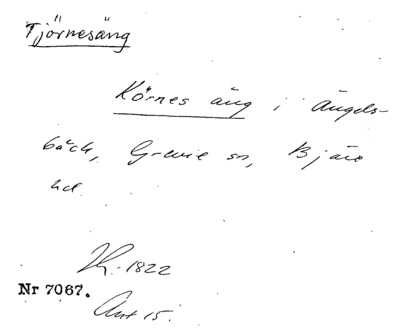 Tjörnesäng
Körnes äng i Ängels-
bäck, Grevie sn, Bjäre
hd.
1822
Nr 7067.
Akt 15.